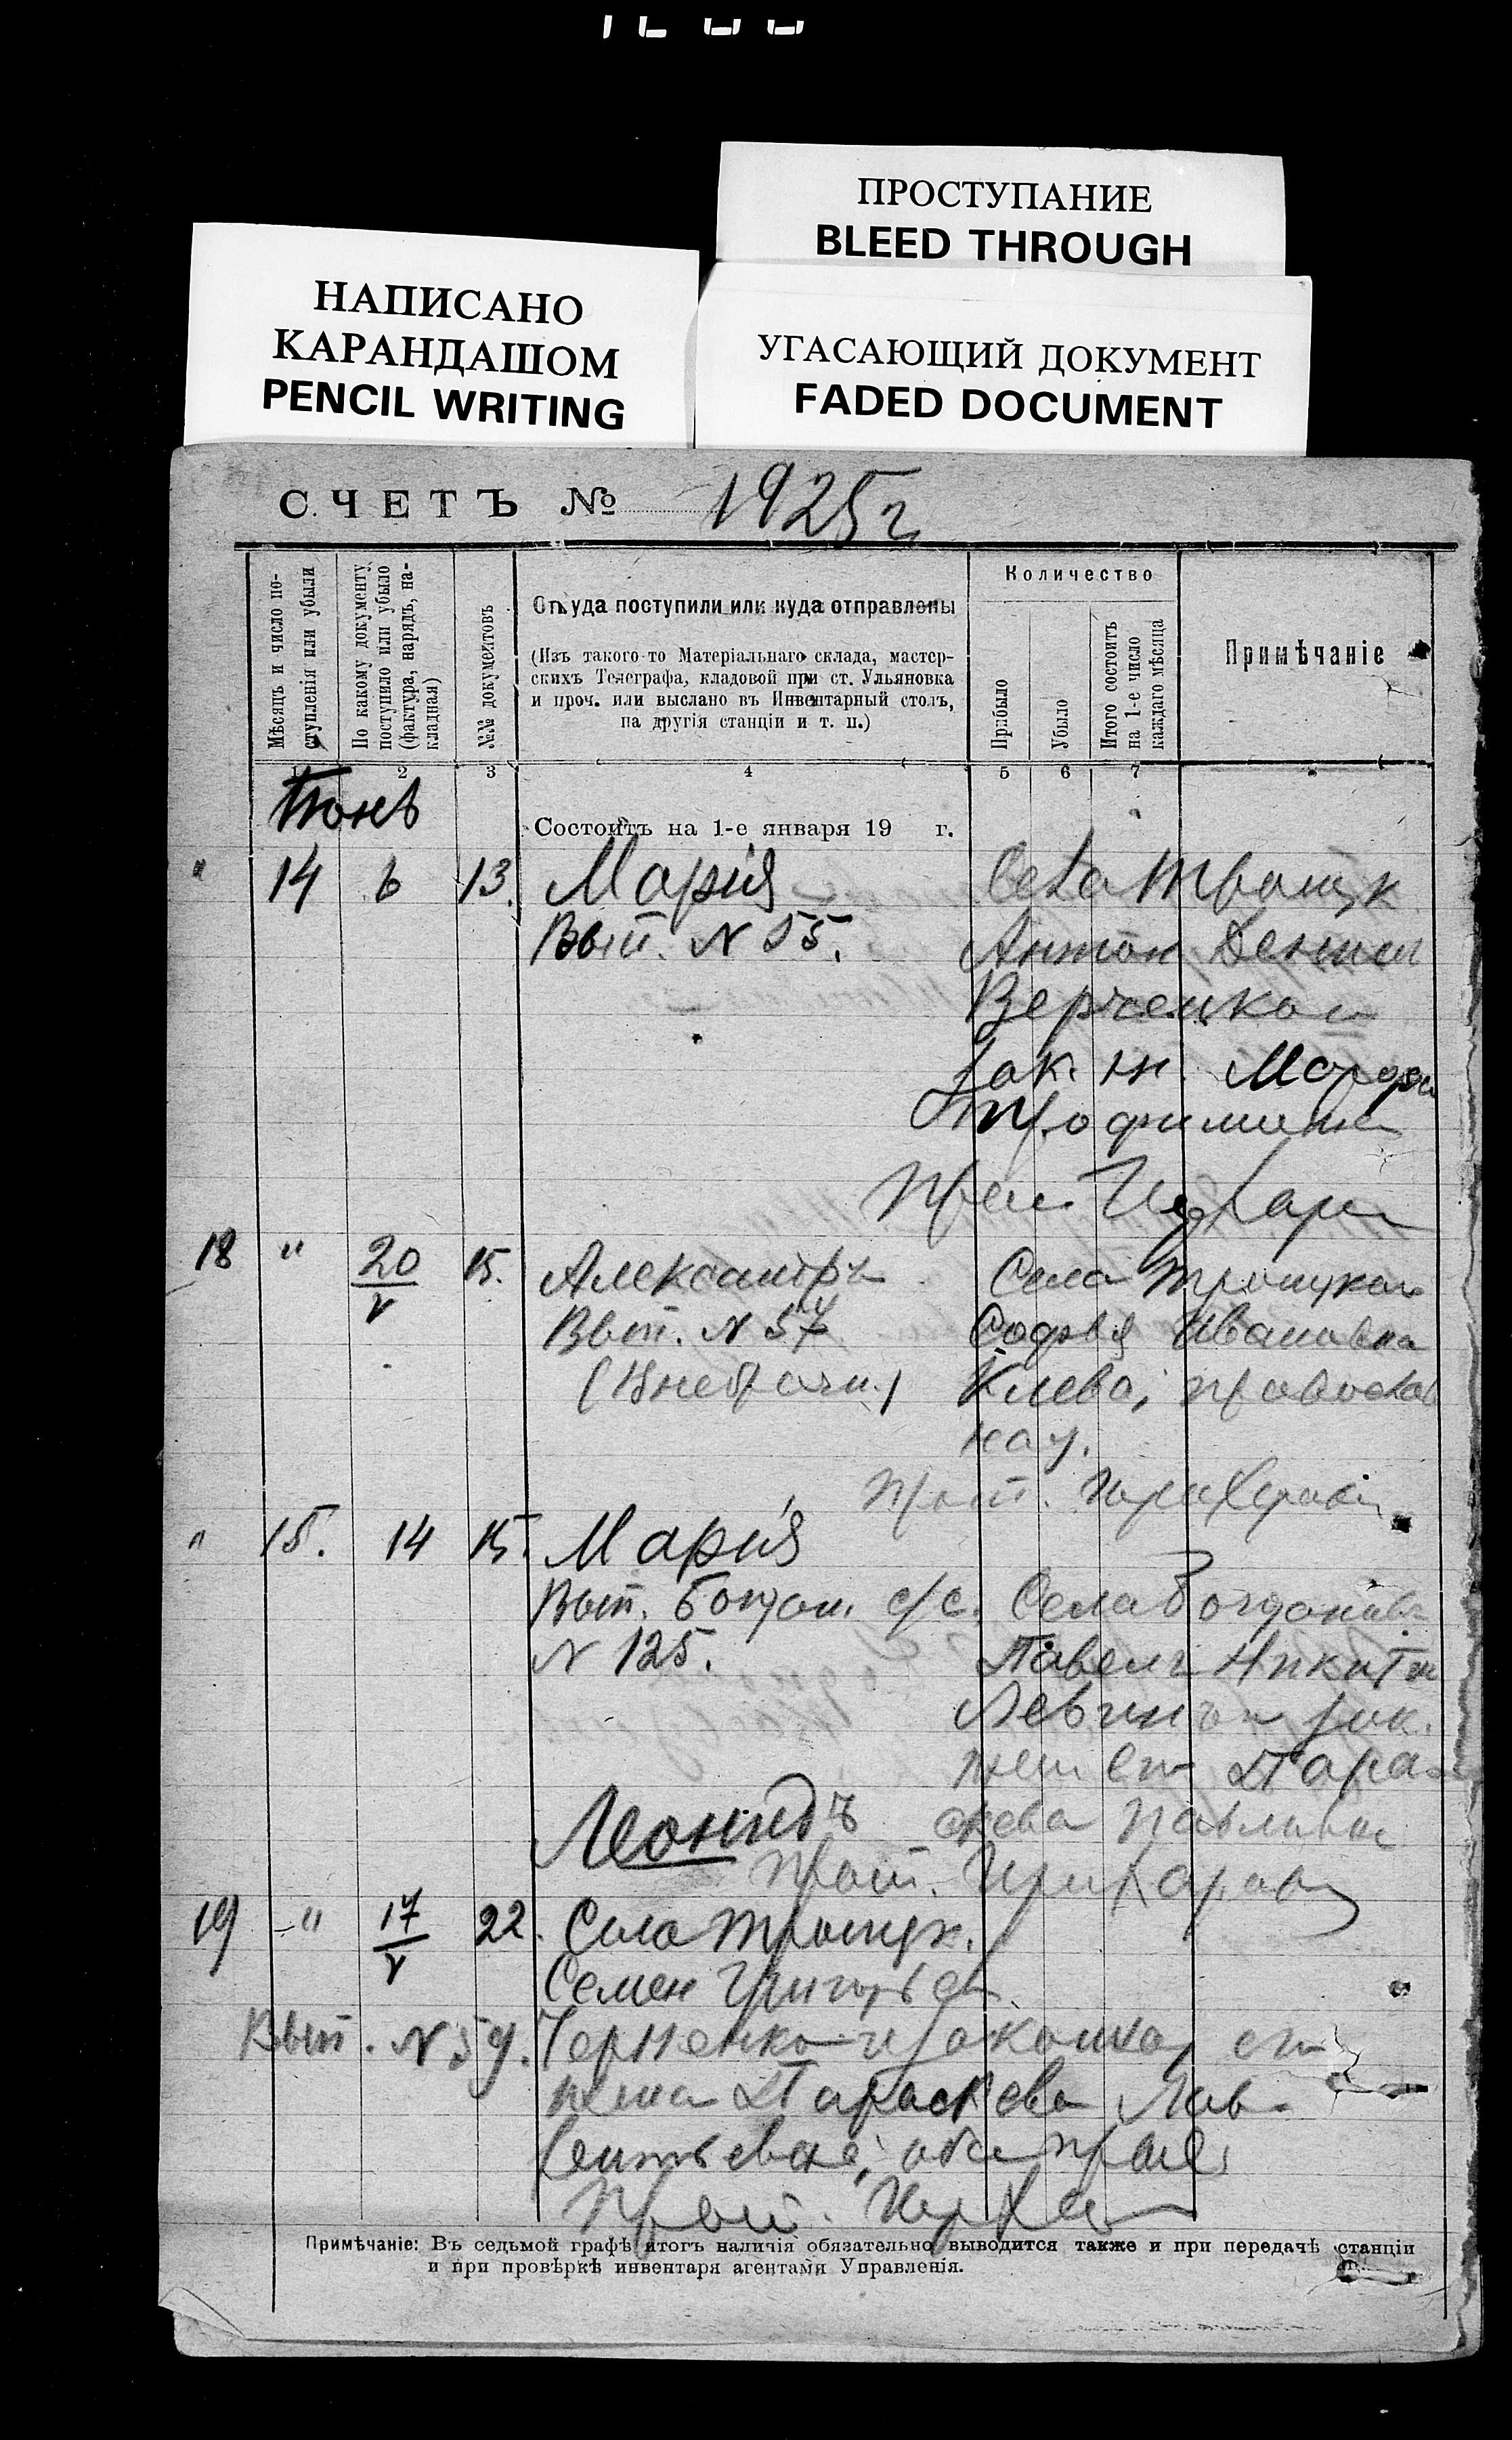 ПРОСТУПАНИЕ
BLEED THROUGH
НАПИСАНО
КАРАНДАШОМ
PENCIL WRITING
УГАСАЮЩИЙ ДОКУМЕНТ
FADED DOCUMENT
СЧЕТЪ № 1925 г
Мѣсяцъ и число по-
ступленія или убыли
По какому документу
поступило или убыло
(фактура, нарядъ, на-
кладная)
№№ документовъ
Откуда поступили или куда отправлены
(Изъ такого-то Матеріальнаго склада, мастер-
скихъ Телеграфа, кладовой при ст. Ульяновка
и проч. или выслано въ Инвентарный столъ,
на другія станціи и т. п.)
Количество
Прибыло
Убыло
Итого состоитъ
на 1-е число
каждаго мѣсяца
Примѣчаніе
1 2 3 4 5 6 7
Іюнь
Состоитъ на 1-е января 19 г.
" 14 6 13. Марія Села Троицк
Вып. N 55. Антон
зак. ж.
18 " 20/V 15. Александръ Села Троицкаго
Вып. N 57 Софья Ивановна
(Внебрачн.) православ
ная.
Прот.
" 15. 14 15. Марія
Вып. Богдан. с/с. Села Богдановки
N 125. Павелъ Никитин
Левинъ и зак.
жен. его Пара-
скева Павловна
Леонидъ
Прот.
19 " 17/V 22. Села Троицк.
Семен Григорьев
Вып. N 59. Черненко и законная его
жена Параскева Лав-
рентьевна, оба прав.
Прот.
Примѣчаніе: Въ седьмой графѣ итогъ наличія обязательно выводится также и при передачѣ станціи
и при провѣркѣ инвентаря агентами Управленія.